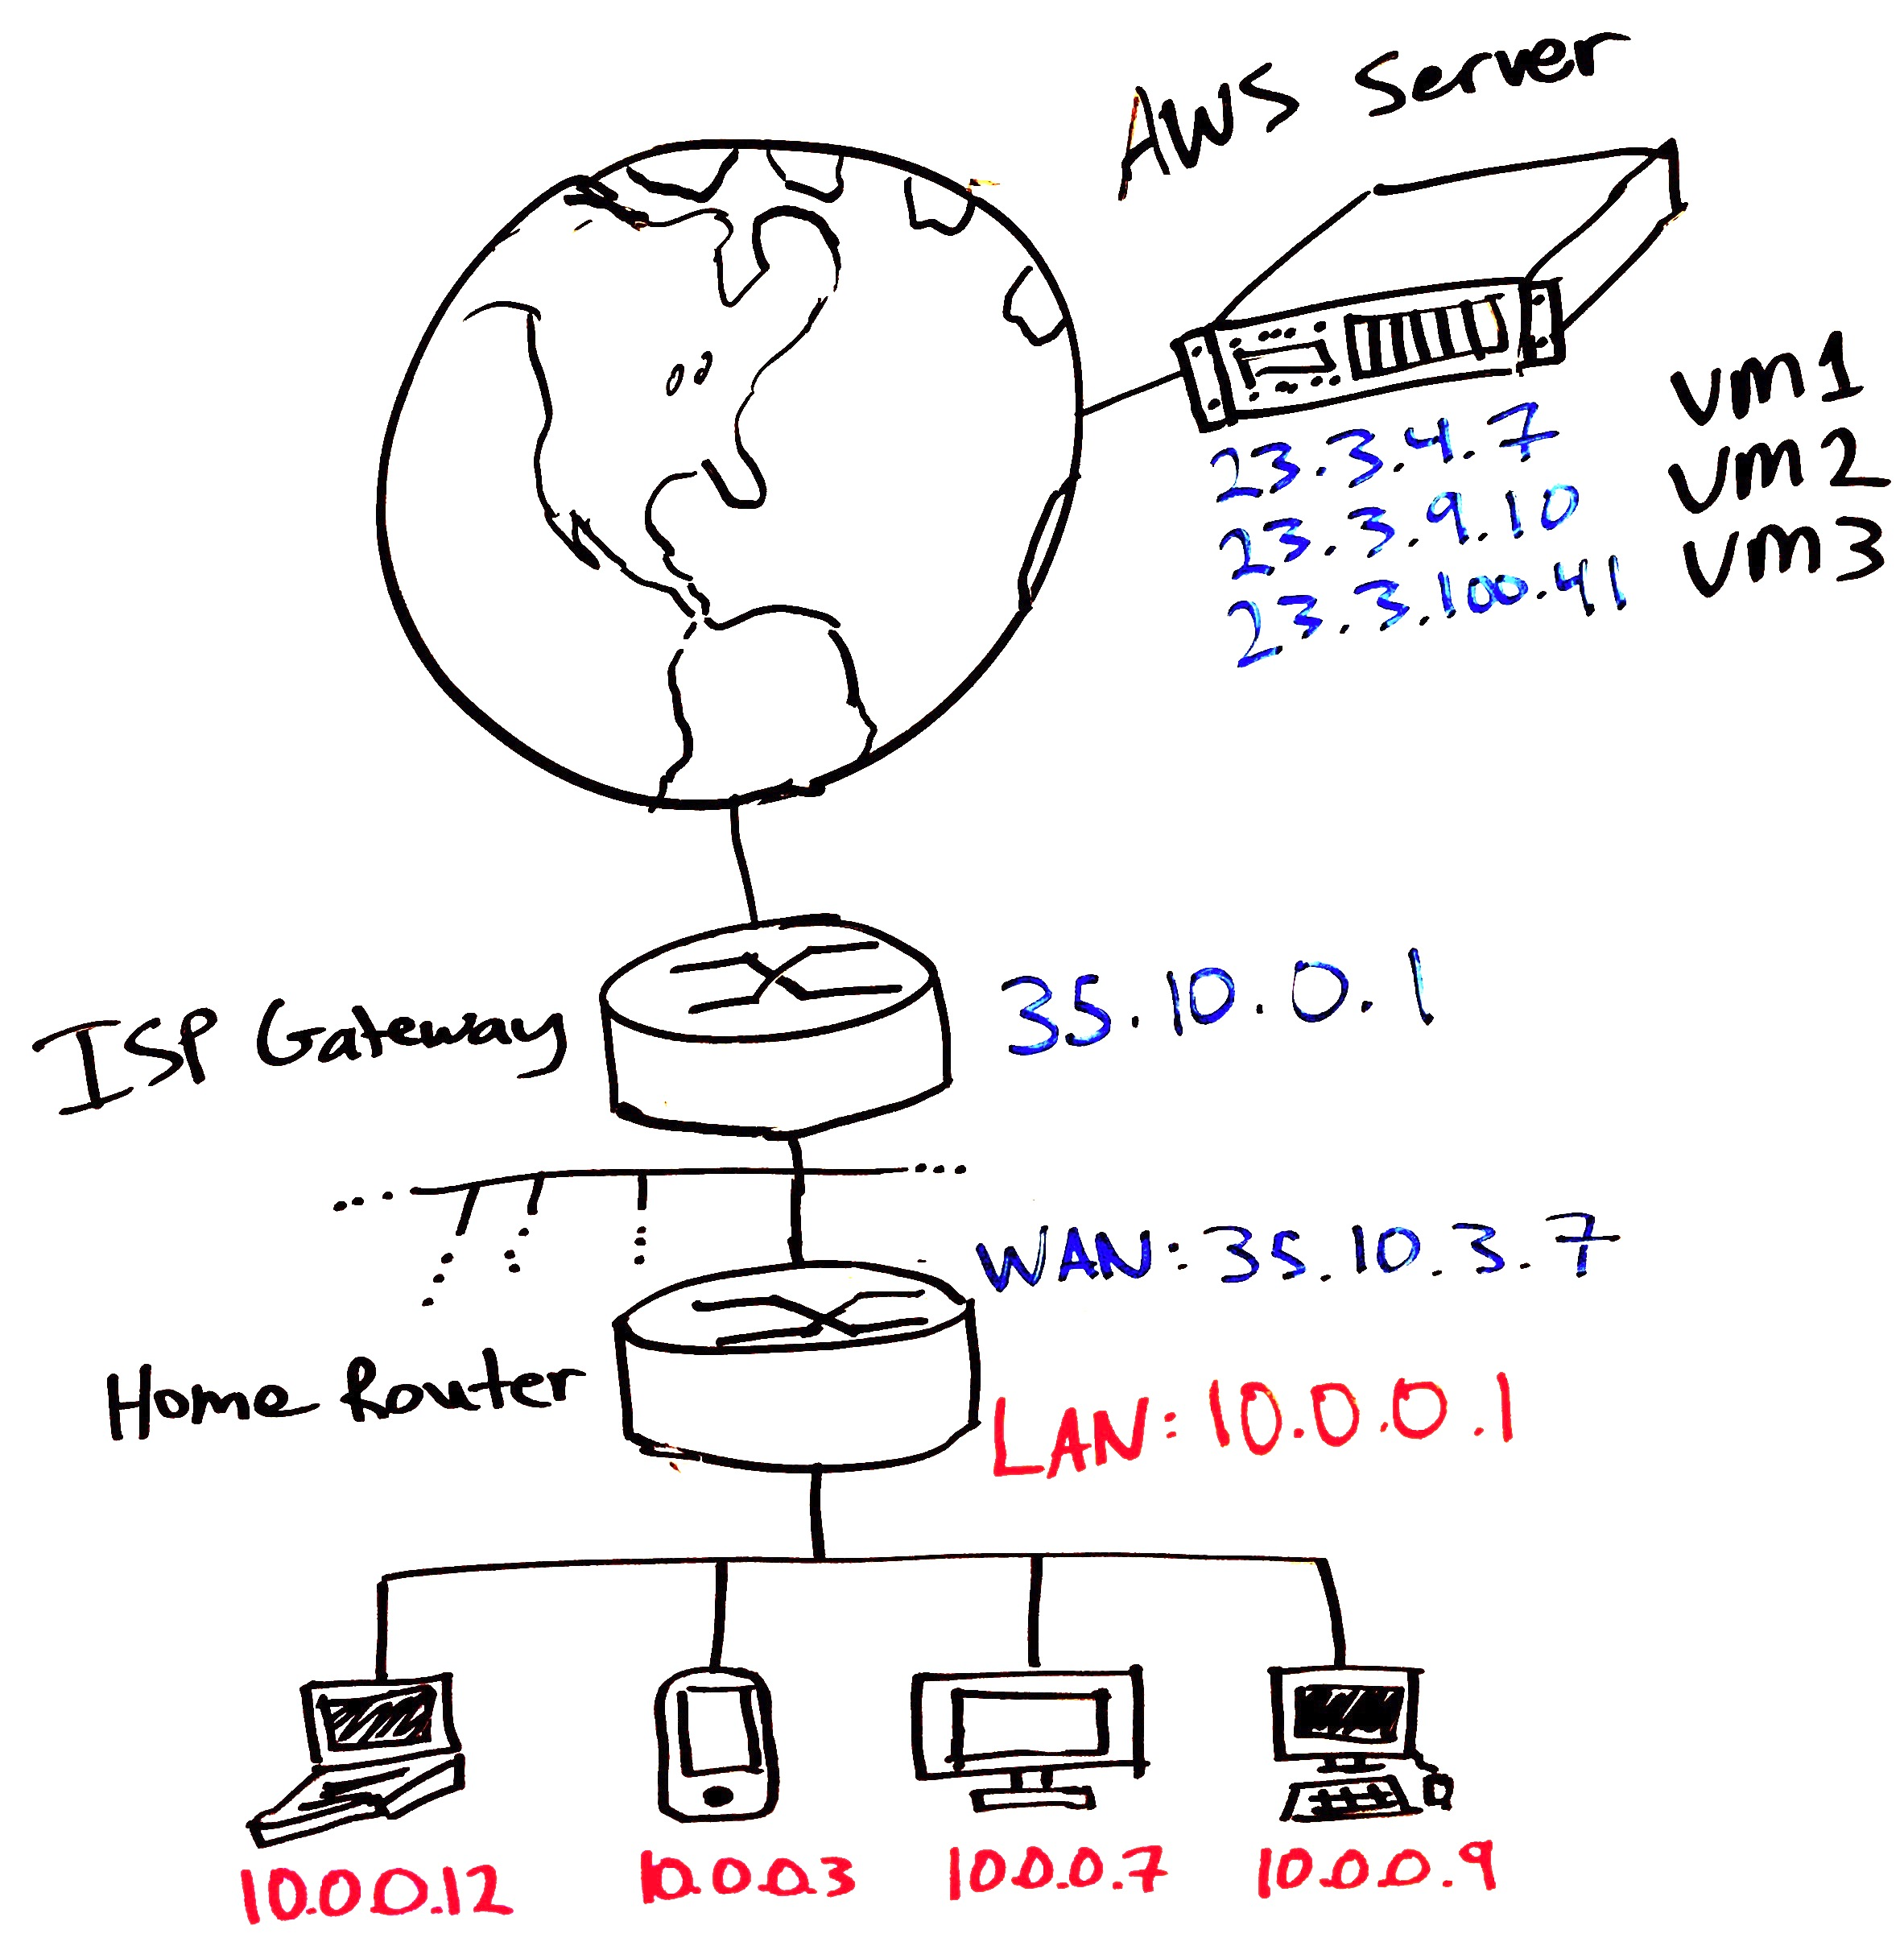 AWS Server
23.3.4.7 VM1
23.3.9.10 VM2
23.3.100.41 VM3
ISP Gateway
35.10.0.1
WAN: 35.10.3.7
Home Router
LAN: 10.0.0.1
10.0.0.12
10.0.0.3
10.0.0.7
10.0.0.9